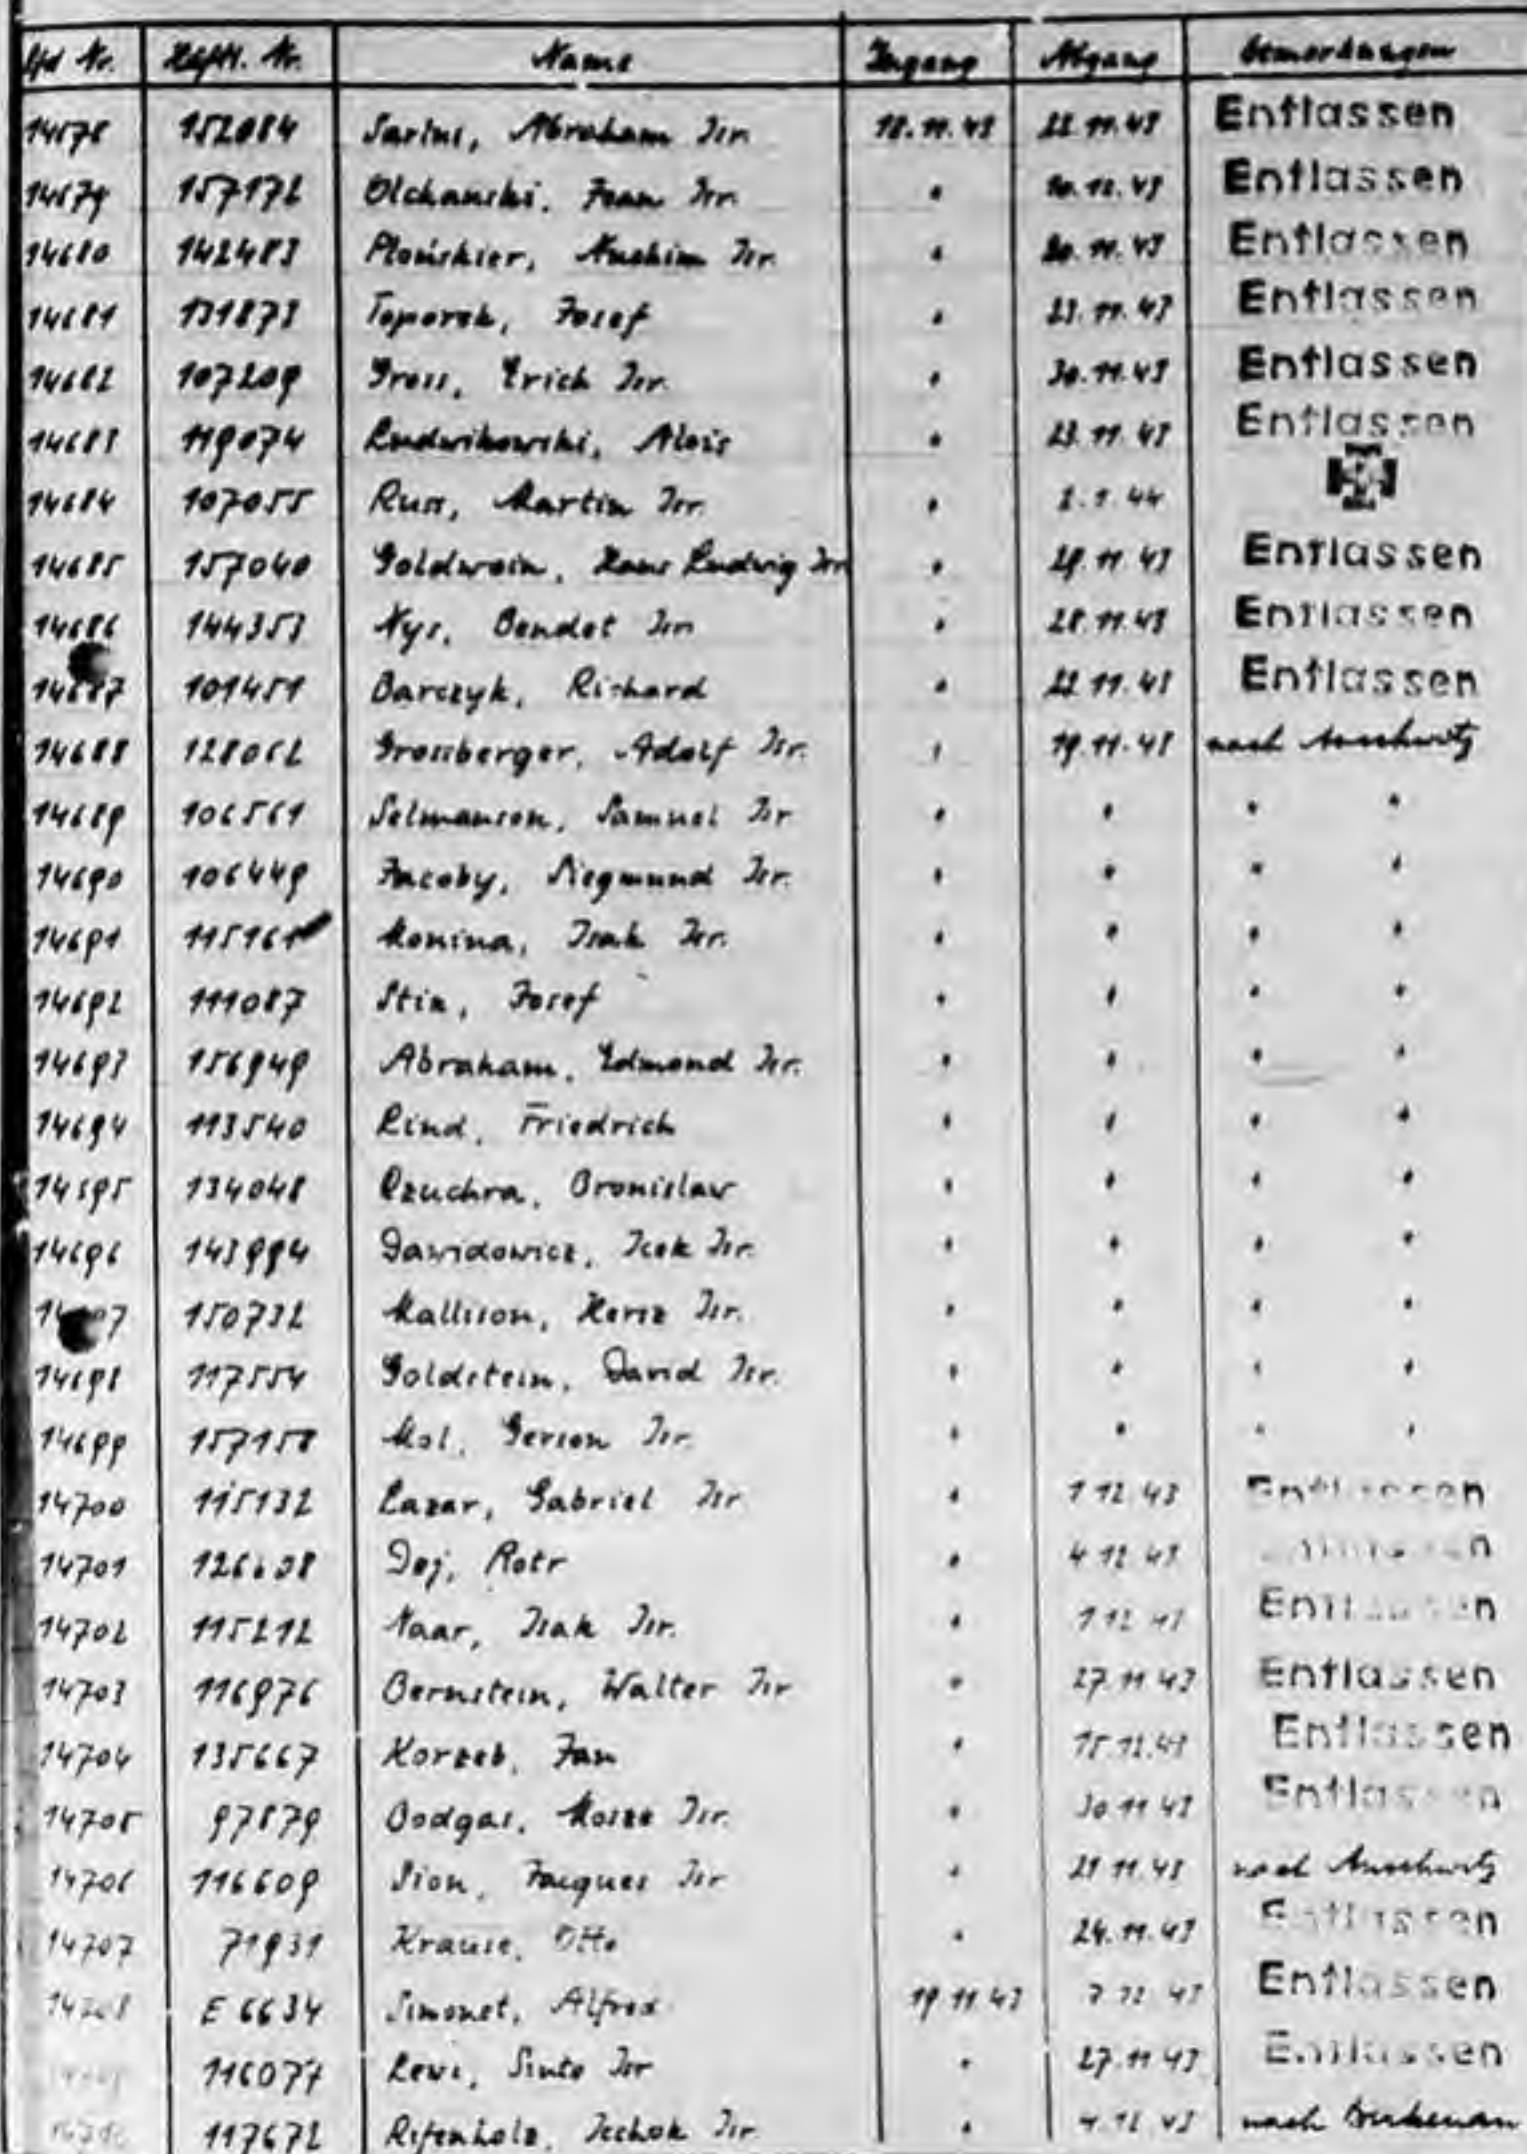 lfd Nr. Häftl. Nr. Name Zugang Abgang Bemerkungen
14678 152084 Abraham Isr. 18.11.43 22.11.43 Entlassen
14679 157172 Olchanski, Jean Isr. " 10.12.43 Entlassen
14680 142483 Płoński­er, Isr. " 20.11.43 Entlassen
14681 131873 Toporek, Josef " 23.11.43 Entlassen
14682 107209 Gross, Erich Isr. " 30.11.43 Entlassen
14683 119074 Ludwikowski, Alois " 23.11.43 Entlassen
14684 107055 Russ, Martin Isr. " 2.1.44
14685 157040 Goldwein, Hans Ludwig Isr " 29.11.43 Entlassen
14686 144353 Nys, Bendet Isr. " 28.11.43 Entlassen
14687 101451 Barczyk, Richard " 22.11.43 Entlassen
14688 128062 Grossberger, Adolf Isr. " 19.11.43 nach Auschwitz
14689 106561 Selmanson, Samuel Isr " " " "
14690 106449 Jacoby, Siegmund Isr. " " " "
14691 115161 Monina, Isak Isr. " " " "
14692 111087 Josef " " " "
14693 156949 Abraham, Edmond Isr. " " " "
14694 113540 Lind, Friedrich " " " "
14695 134048 Czuchra, Bronislaw " " " "
14696 143994 Dawidowicz, Icek Isr. " " " "
150732 Mallison, Hersz Isr. " " " "
14698 117554 Goldstein, David Isr. " " " "
14699 157158 Mol, Gerson Isr. " " " "
14700 115132 Lazar, Gabriel Isr " 1.12.43 Entlassen
14701 Piotr " 4.12.43 Entlassen
14702 115212 Naar, Isak Isr. " 1.12.43 Entlassen
14703 116976 Bernstein, Walter Isr " 27.11.43 Entlassen
14704 135667 Korzeb, Jan " 15.12.43 Entlassen
14705 97879 Bodgas, Mosze Isr. " 30.11.43 Entlassen
14706 116609 Sion, Jacques Isr " 29.11.43 nach Auschwitz
14707 71931 Krause, Otto " 24.11.43 Entlassen
14708 E 6634 Simonet, Alfred 19.11.43 7.12.43 Entlassen
116077 Lewi, Sinto Isr " 27.11.43 Entlassen
117672 Rifenholz, Icchok Isr. " 4.12.43 nach Birkenau